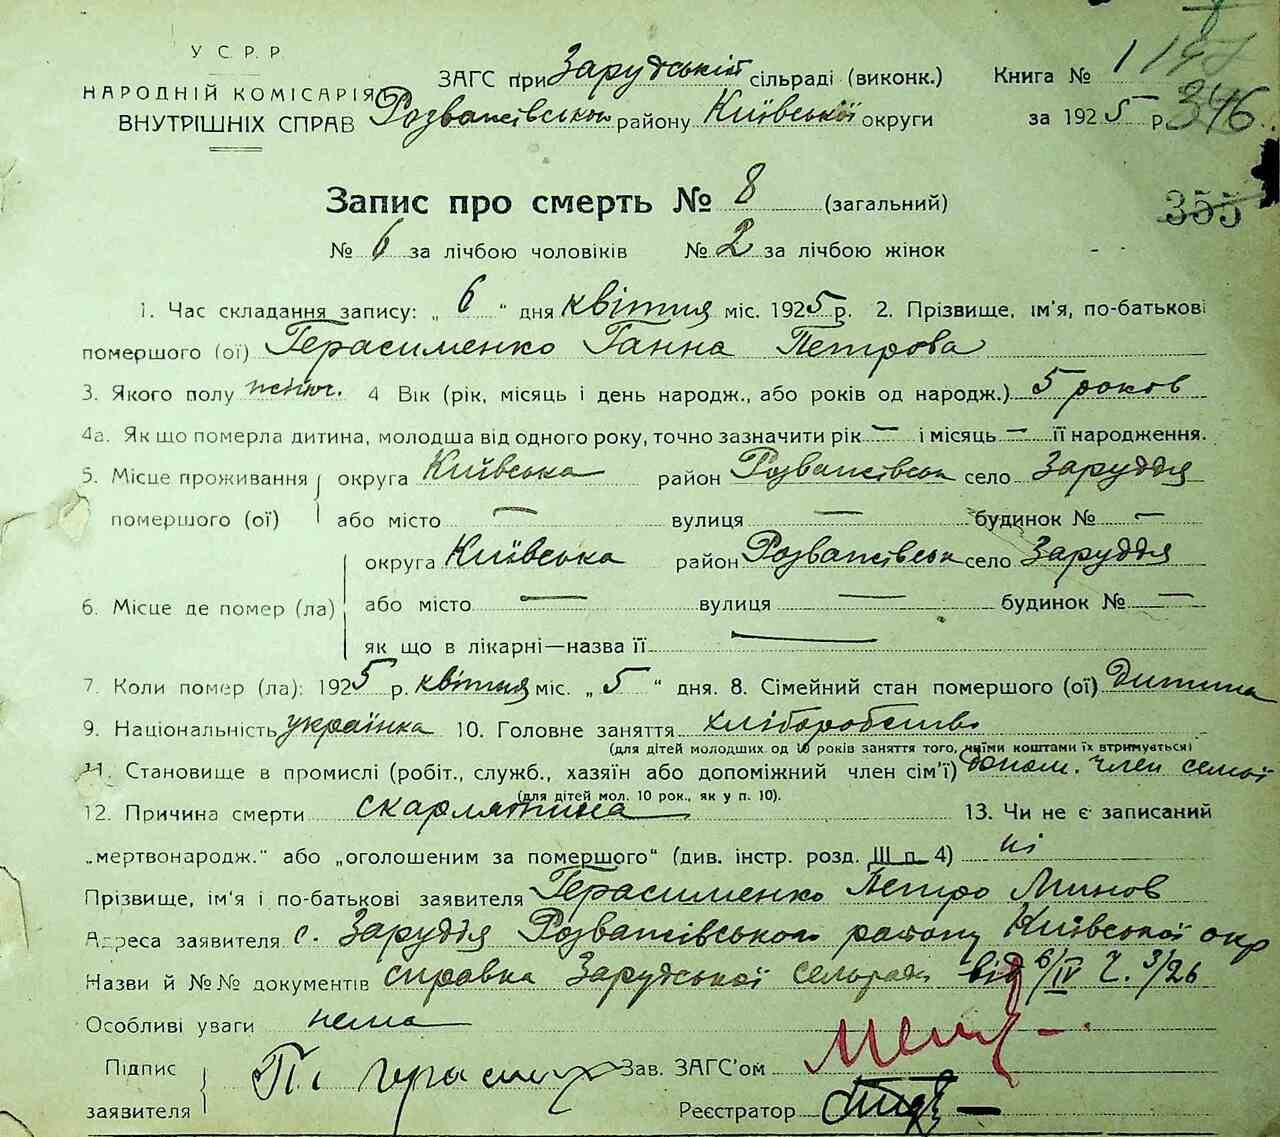 У С. Р. Р.
НАРОДНІЙ КОМІСАРІЯТ
ВНУТРІШНІХ СПРАВ
ЗАГС при Зарудській сільраді (виконк.)
Розважівського району Київської округи
Книга № 1 147
за 1925 р. 346
355
Запис про смерть № 8 (загальний)
№ 6 за лічбою чоловіків № 2 за лічбою жінок
1. Час складання запису: „ 6 “ дня квітня міс. 1925 р. 2. Прізвище, ім'я, по-батькові
помершого (ої) Герасименко Ганна Петрова
3. Якого полу жіноч. 4 Вік (рік, місяць і день народж., або років од народж.) 5 років
4а. Як що померла дитина, молодша від одного року, точно зазначити рік — і місяць — її народження.
5. Місце проживання округа Київська район Розважівськ село Заруддя
помершого (ої) або місто — вулиця — будинок № —
округа Київська район Розважівськ село Заруддя
6. Місце де помер (ла) або місто — вулиця — будинок № —
як що в лікарні—назва її —
7. Коли помер (ла): 1925 р. квітня міс. „ 5 “ дня. 8. Сімейний стан помершого (ої) Дитина
9. Національність українка 10. Головне заняття хліборобство
(для дітей молодших од 10 років заняття того, чиїми коштами їх втримується)
11. Становище в промислі (робіт., служб., хазяїн або допоміжний член сім'ї) допом. член семої
(для дітей мол. 10 рок., як у п. 10).
12. Причина смерти скарлятина 13. Чи не є записаний
„мертвонародж.“ або „оголошеним за помершого“ (див. інстр. розд. III п. 4) ні
Прізвище, ім'я і по-батькові заявителя Герасименко Петро Минов
Адреса заявителя с. Заруддя Розважівського району Київської окр
Назви й №№ документів справка Зарудської сельради від 6/IV Ч. 3/26
Особливі уваги нема
Підпис
заявителя П.
Зав. ЗАГС'ом
Реєстратор